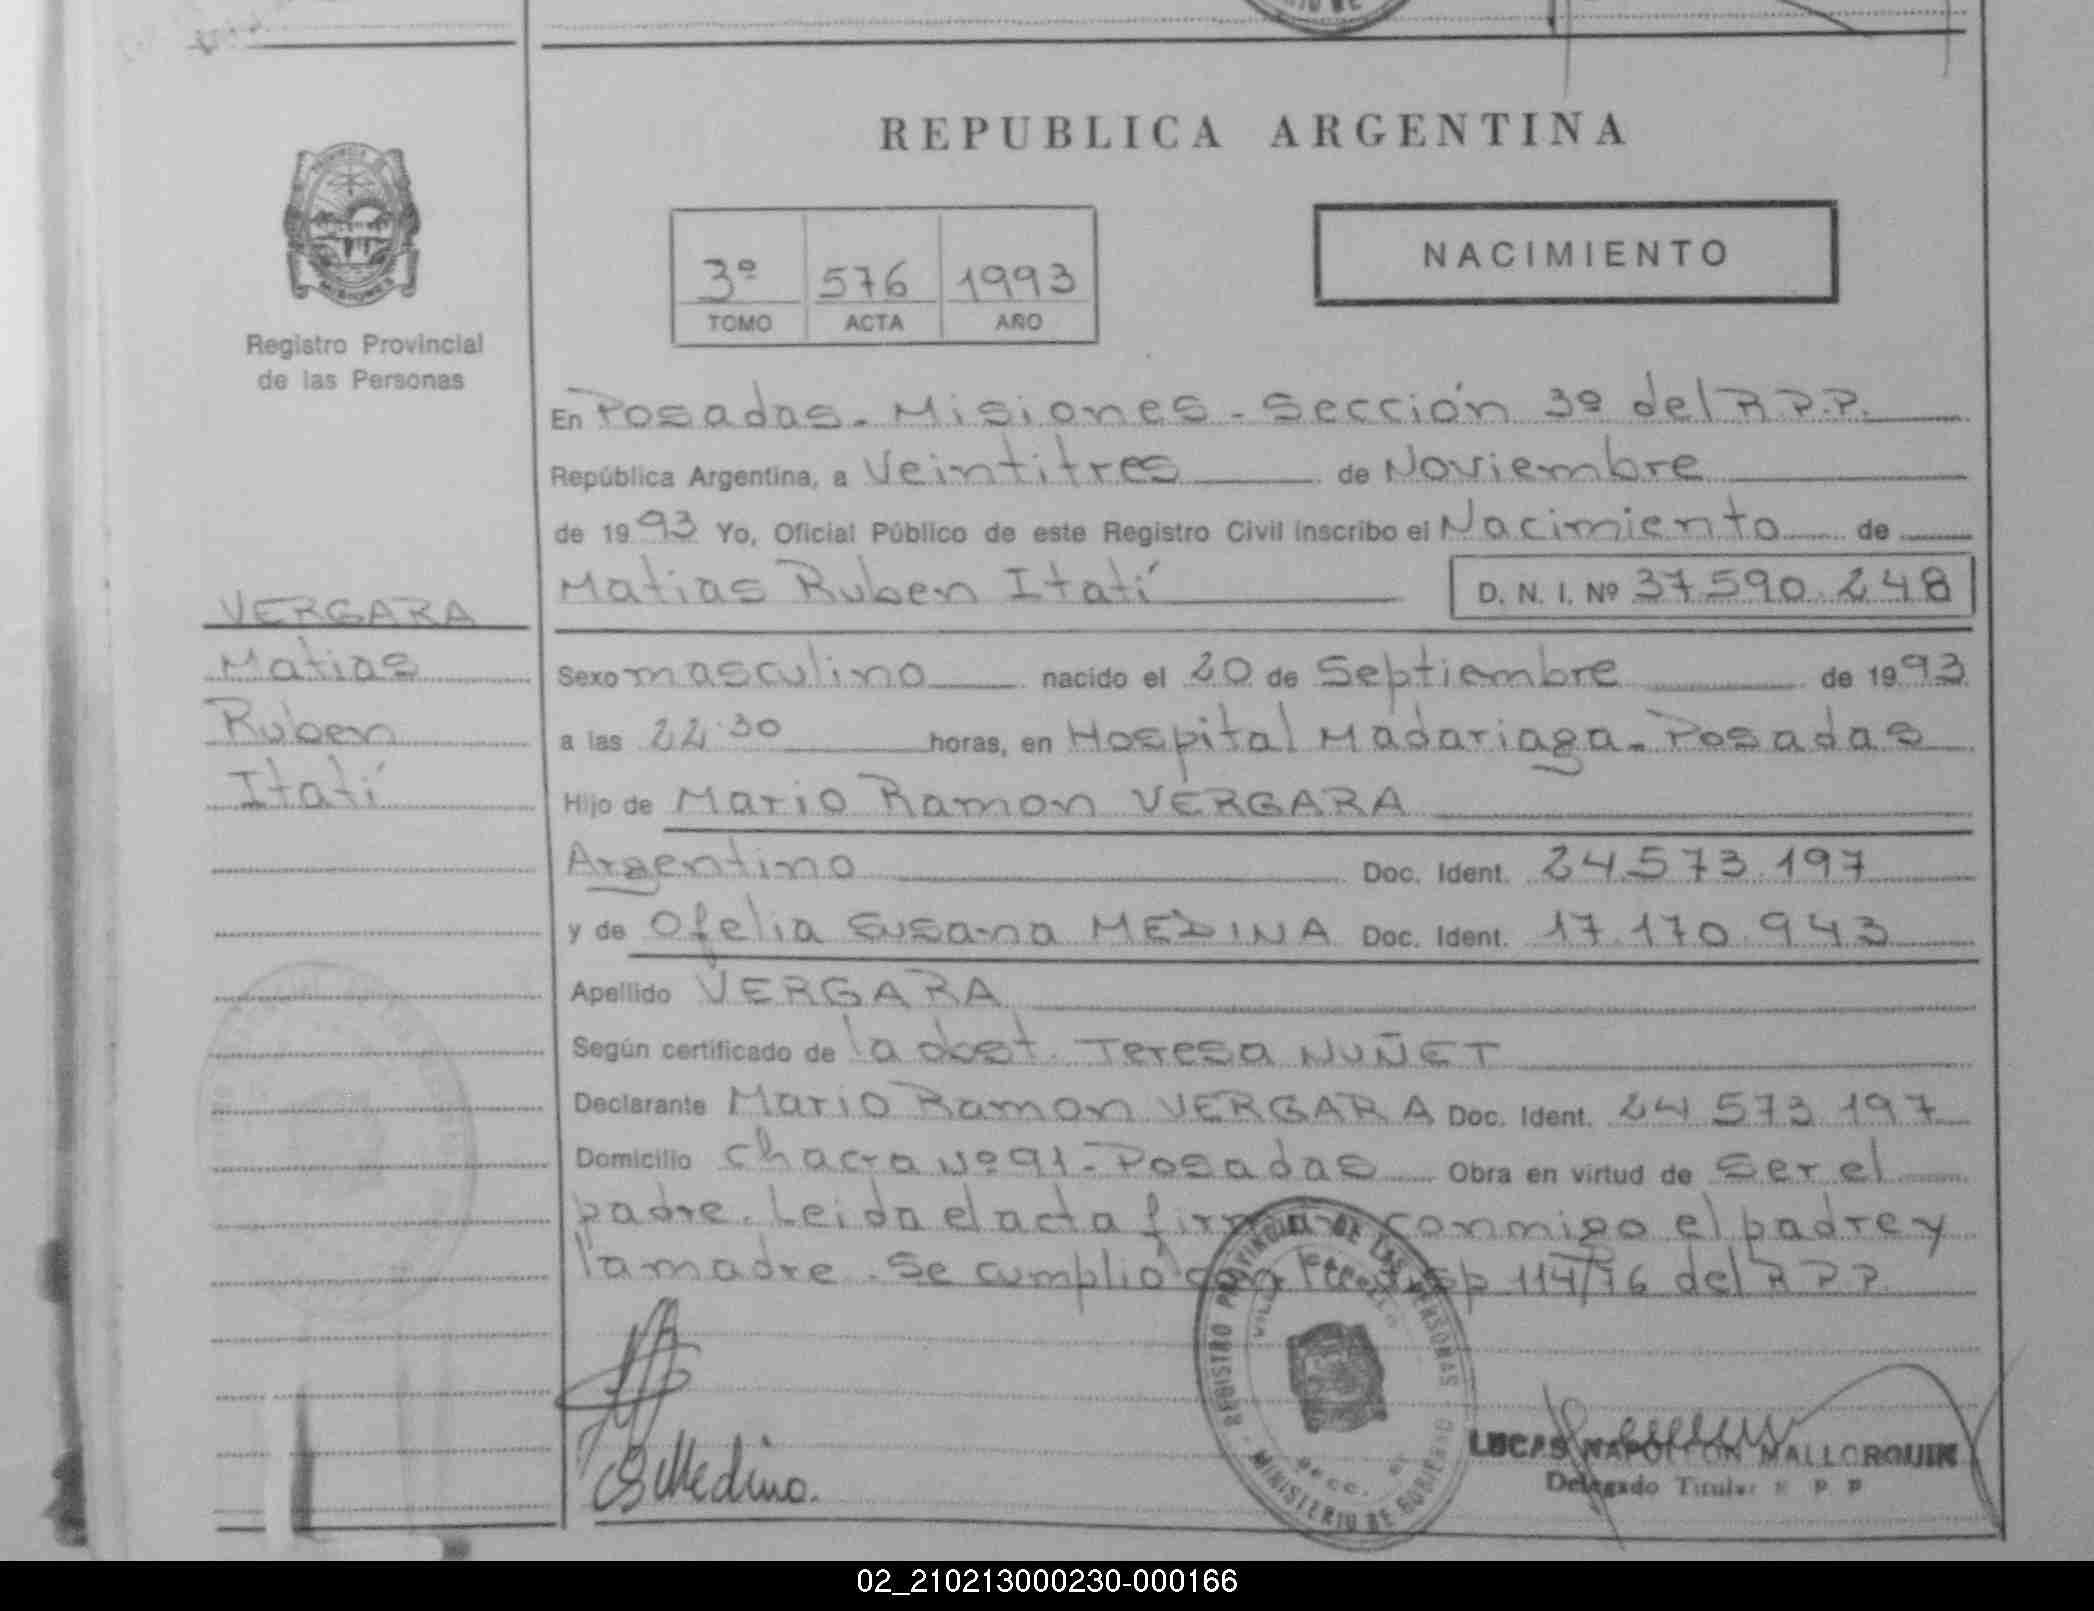 REPUBLICA ARGENTINA
PROVINCIA DE MISIONES
Registro Provincial
de las Personas
3º 576 1993
TOMO ACTA AÑO
NACIMIENTO
En Posadas - Misiones - Sección 3º del R.P.P.
República Argentina, a Veintitres de Noviembre
de 1993 Yo, Oficial Público de este Registro Civil inscribo el Nacimiento de
Matias Ruben Itatí D. N. I. Nº 37.590.248
VERGARA
Matias
Ruben
Itatí
Sexo masculino nacido el 20 de Septiembre de 1993
a las 22.30 horas, en Hospital Madariaga - Posadas
Hijo de Mario Ramon VERGARA
Argentino Doc. Ident. 24.573.197
y de Ofelia Susana MEDINA Doc. Ident. 17.170.943
Apellido VERGARA
Según certificado de la obst. Teresa NUÑET
Declarante Mario Ramon VERGARA Doc. Ident. 24.573.197
Domicilio Chacra Nº 91 - Posadas Obra en virtud de ser el
padre. Leida el acta firman conmigo el padre y
la madre. Se cumplió con 114/76 del R.P.P.
REGISTRO PROVINCIAL DE LAS PERSONAS
MINISTERIO DE GOBIERNO
SECC.
Medina.
LUCAS NAPOLEON MALLORQUIN
Delegado Titular R P P
02_210213000230-000166